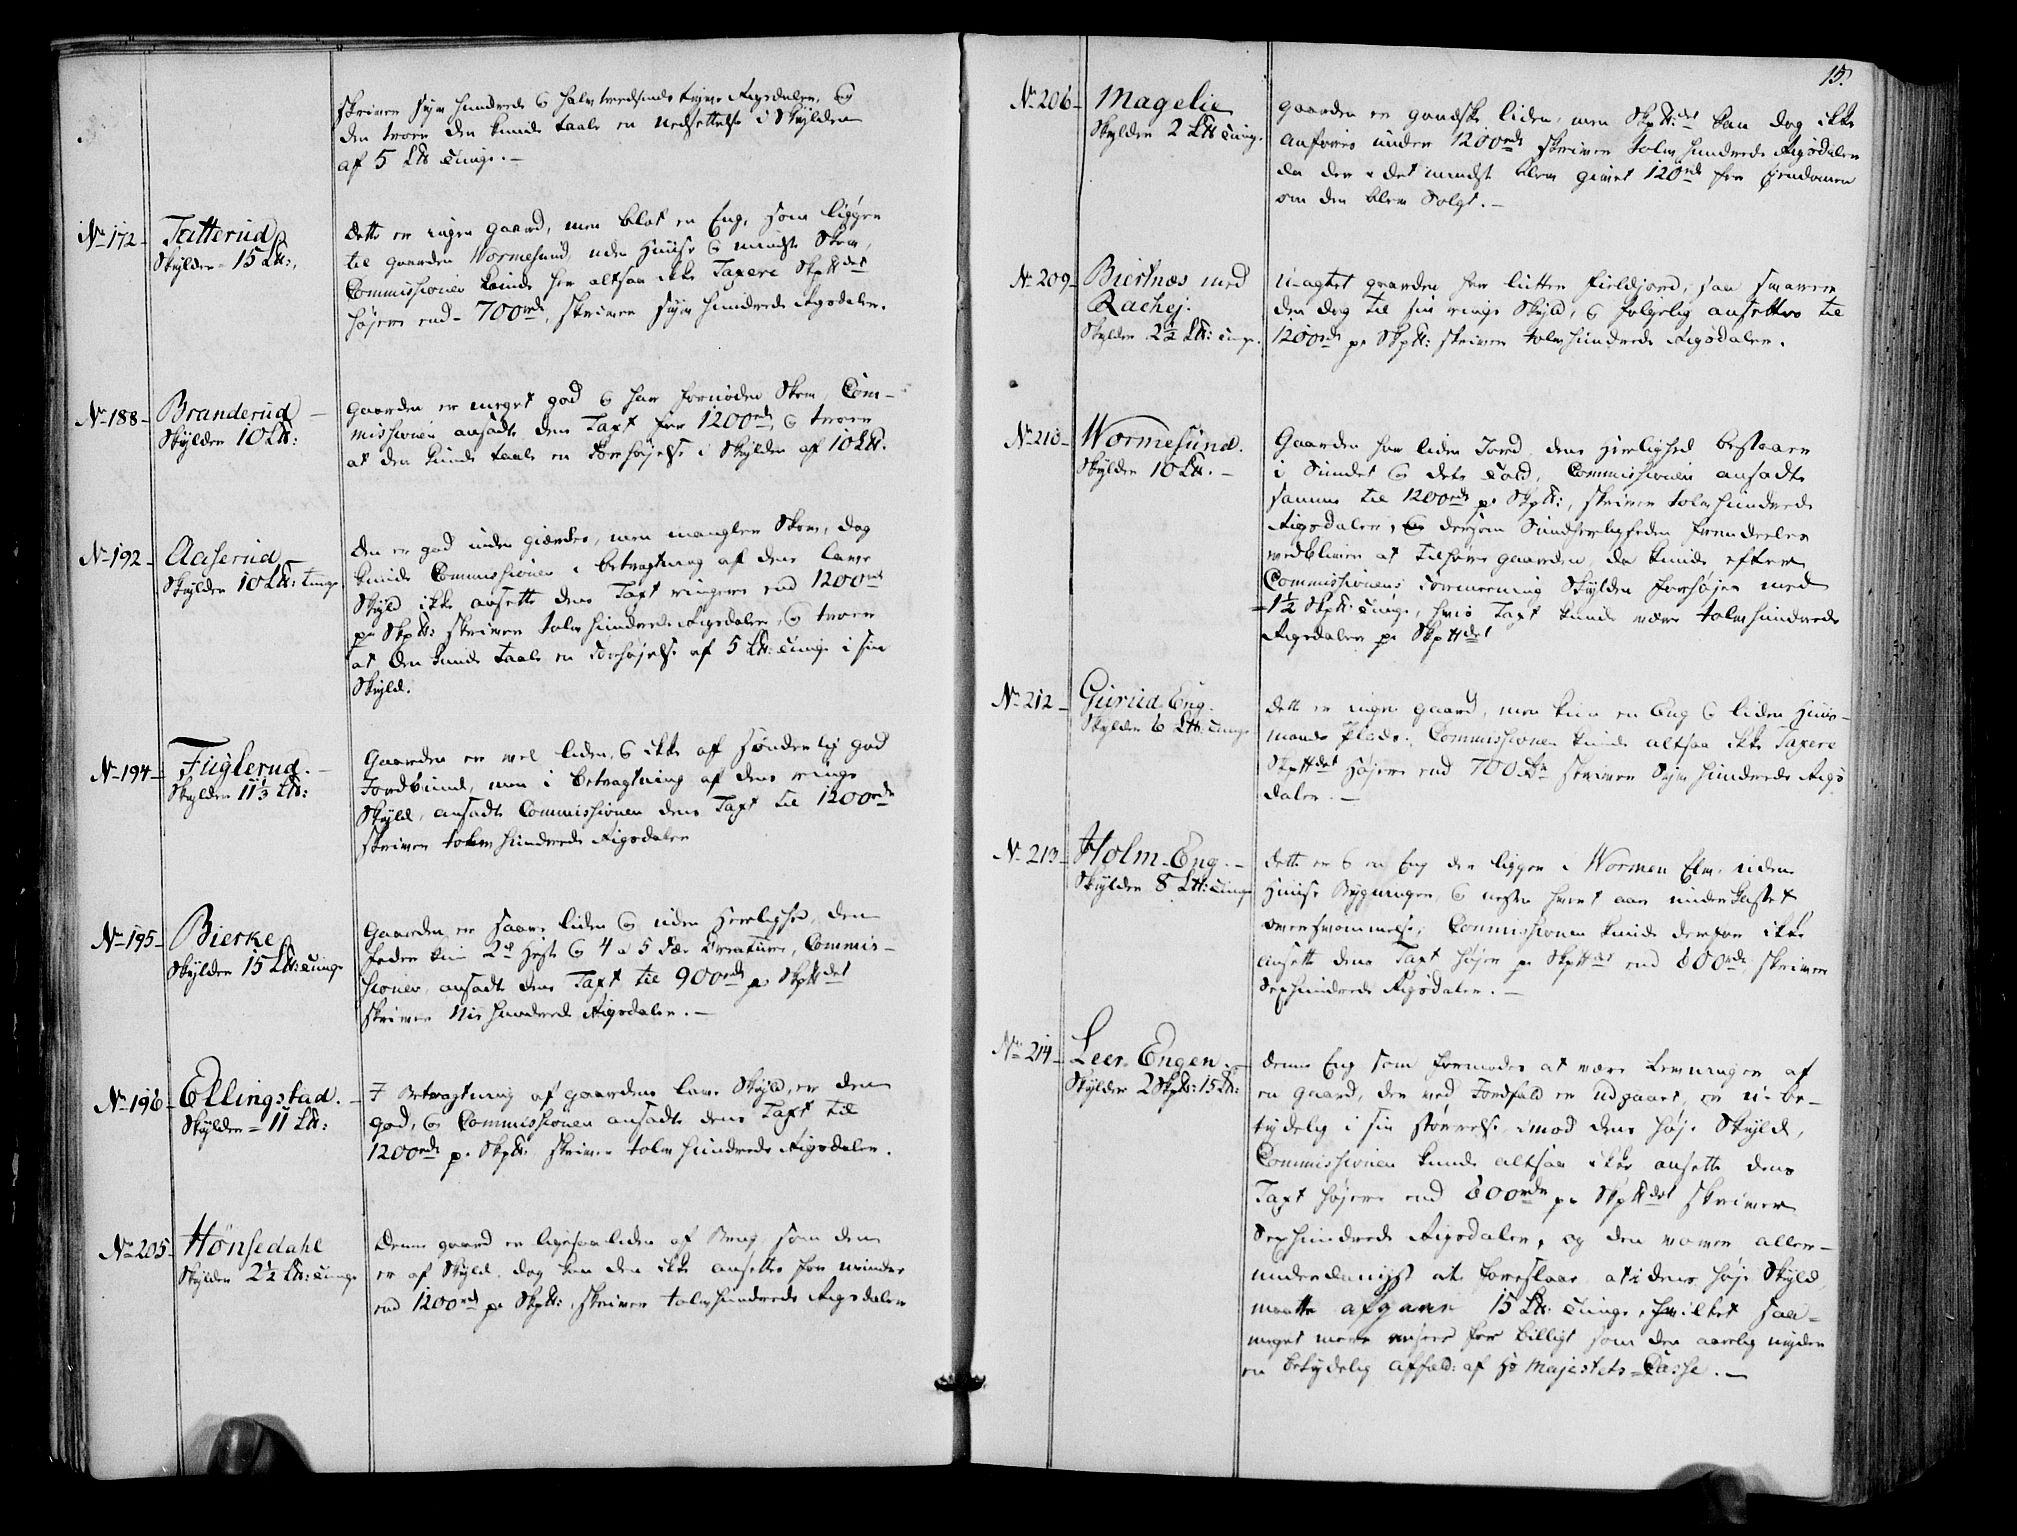 skriver syv hundrede & halvtredsinds tyve Rigsdaler, og
den troer den kunde taale en Nedsettelse i Skylden
af 5 L℔ Tunge. –
No 172 – Tatterud
Skylder – 15 L℔:
dette er ingen gaard, men blot en Eng, som ligger
til gaarden Wormesund, uden Huuse & mindste Skov,
Commissionen kunde her altsaa ikke Taxere Skp℔det
højere end – 700 rdr, skriver syv hundrede Rigsdaler.
No 188 – Branderud –
Skylder 10 L℔:
Gaarden er meget god & har fornøden Skov, Com-
missionen ansadte dens Taxt for 1200 rdr & troer
at den kunde taale en Forhøjelse i Skylden af 10 L℔.
No 192 – Aaserud –
Skylder 10 L℔: Tunge
den er god under giærdes, men mangler Skov, dog
kunde Commissionen i betragtning af dens lave
Skyld ikke ansette dens Taxt ringere end 1200 rdr
pr Skp℔: skriver tolv hundrede Rigsdaler, & troer
at den kunde taale en Forhøjelse af 5 L℔: Tunge i sin
Skyld.
No 194 – Fuglerud. –
Skylder 11⅓ L℔:
Gaarden er vel liden, & ikke af sønderlig god
Jordbund, men i betragtning af dens ringe
Skyld, ansadte Commissionen dens Taxt til 1200 rdr
skriver tolv hundrede Rigsdaler
No 195 – Bierke
Skylder 15 L℔: Tunge
Gaarden er saare liden & uden Herlighed, den
feder kun 2de Heste & 4 a 5 Fæe Creature, Commis-
sionen ansadte dens Taxt til 900 rdr pr Skp℔det
skriver Nie hundrede Rigsdaler. –
No 196 – Ellingstad. –
Skylder = 11 L℔:
I Betragtning af gaardens lave Skyld, er den
god, & Commissionen ansadte dens Taxt til
1200 rdr pr Skp℔: skriver tolv hundrede Rigsdaler.
No 205 – Hönsedahl
Skylder 2½ L℔: Tunge
Denne gaard er ligesaa liden af Brug som den
er af Skyld, dog kan den ikke ansettes for mindre
end 1200 rdr pr Skp℔:, skriver tolv hundrede Rigsdaler
15.
No 206 – Magelie
Skylder 2 L℔ Tunge.
gaarden er gandske liden, men Skp℔:det kan dog ikke
anføres under 1200 rdr skriver tolv hundrede Rigsdaler
da der i det mindste blev givet 120 rdr for Eiendomen
om den blev Solgt. –
No 209 – Biertnæs med
Rachej.
Skylder 2½ L℔: Tunge.
U-agtet gaarden har lutter Fieldjord, saa svarer
den dog til sin ringe Skyld, & følgelig ansettes til
1200 rdr pr Skp℔: skriver tolv hundrede Rigsdaler.
No 210 – Wormesund.
Skylder 10 L℔. –
Gaarden har liden Jord, dens Herlighed bestaaer
i Sundet & dets Told, Commissionen ansadte
samme til 1200 rdr pr Skp℔:, skriver tolv hundrede
Rigsdaler, & dersom Sundherligheden fremdeeles
vedbliver at tilhøre gaarden, da kunde efter
Commissionens Formeening Skylden forhøjes med
= 1½ Skp℔: Tunge, hvis Taxt kunde være tolv hundrede
Rigsdaler pr Skp℔det
No 212 – Gurud Eng.
Skylder 6 L℔: Tunge
dette er ingen gaard, men kun en Eng & liden Huus-
mands Plads:, Commissionen kunde altsaa ikke Taxere
Skp℔det højere end 700 Rdr skriver Syv hundrede Rigs
daler. –
No 213 – Holm-Eng. –
Skylder 8 L℔: Tunge
dette er & en Eng der ligger i Wormen Elv, uden
Huuse Bygninger, & nesten hvert aar underkastet
oversvømmelse; Commissionen kunde derfor ikke
ansette dens Taxt højere pr Skp℔det end 600 rdr, skriver
Sexhundrede Rigsdaler. –
No 214 – Leer-Engen. –
Skylder 2 Skp℔: 15 L℔:
denne Eng som formodes at være Levninger af
en gaard, der ved Jordfald er udgaaet, er u-be-
tydelig i sin størrelse imod dens høje Skyld,
Commissionen kunde altsaa ikke ansette dens
Taxt højere end 600 rdr pr Skp℔det skriver
Sexhundrede Rigsdaler, og den vover aller-
underdanigst at foreslaae at i dens høje Skyld
maatte afgaae 15 L℔: Tunge, hvilket saa-
meget mere ansees for billigt som den aarlig nyder
en betydelig affald: af Hs Majestets-Casse. –